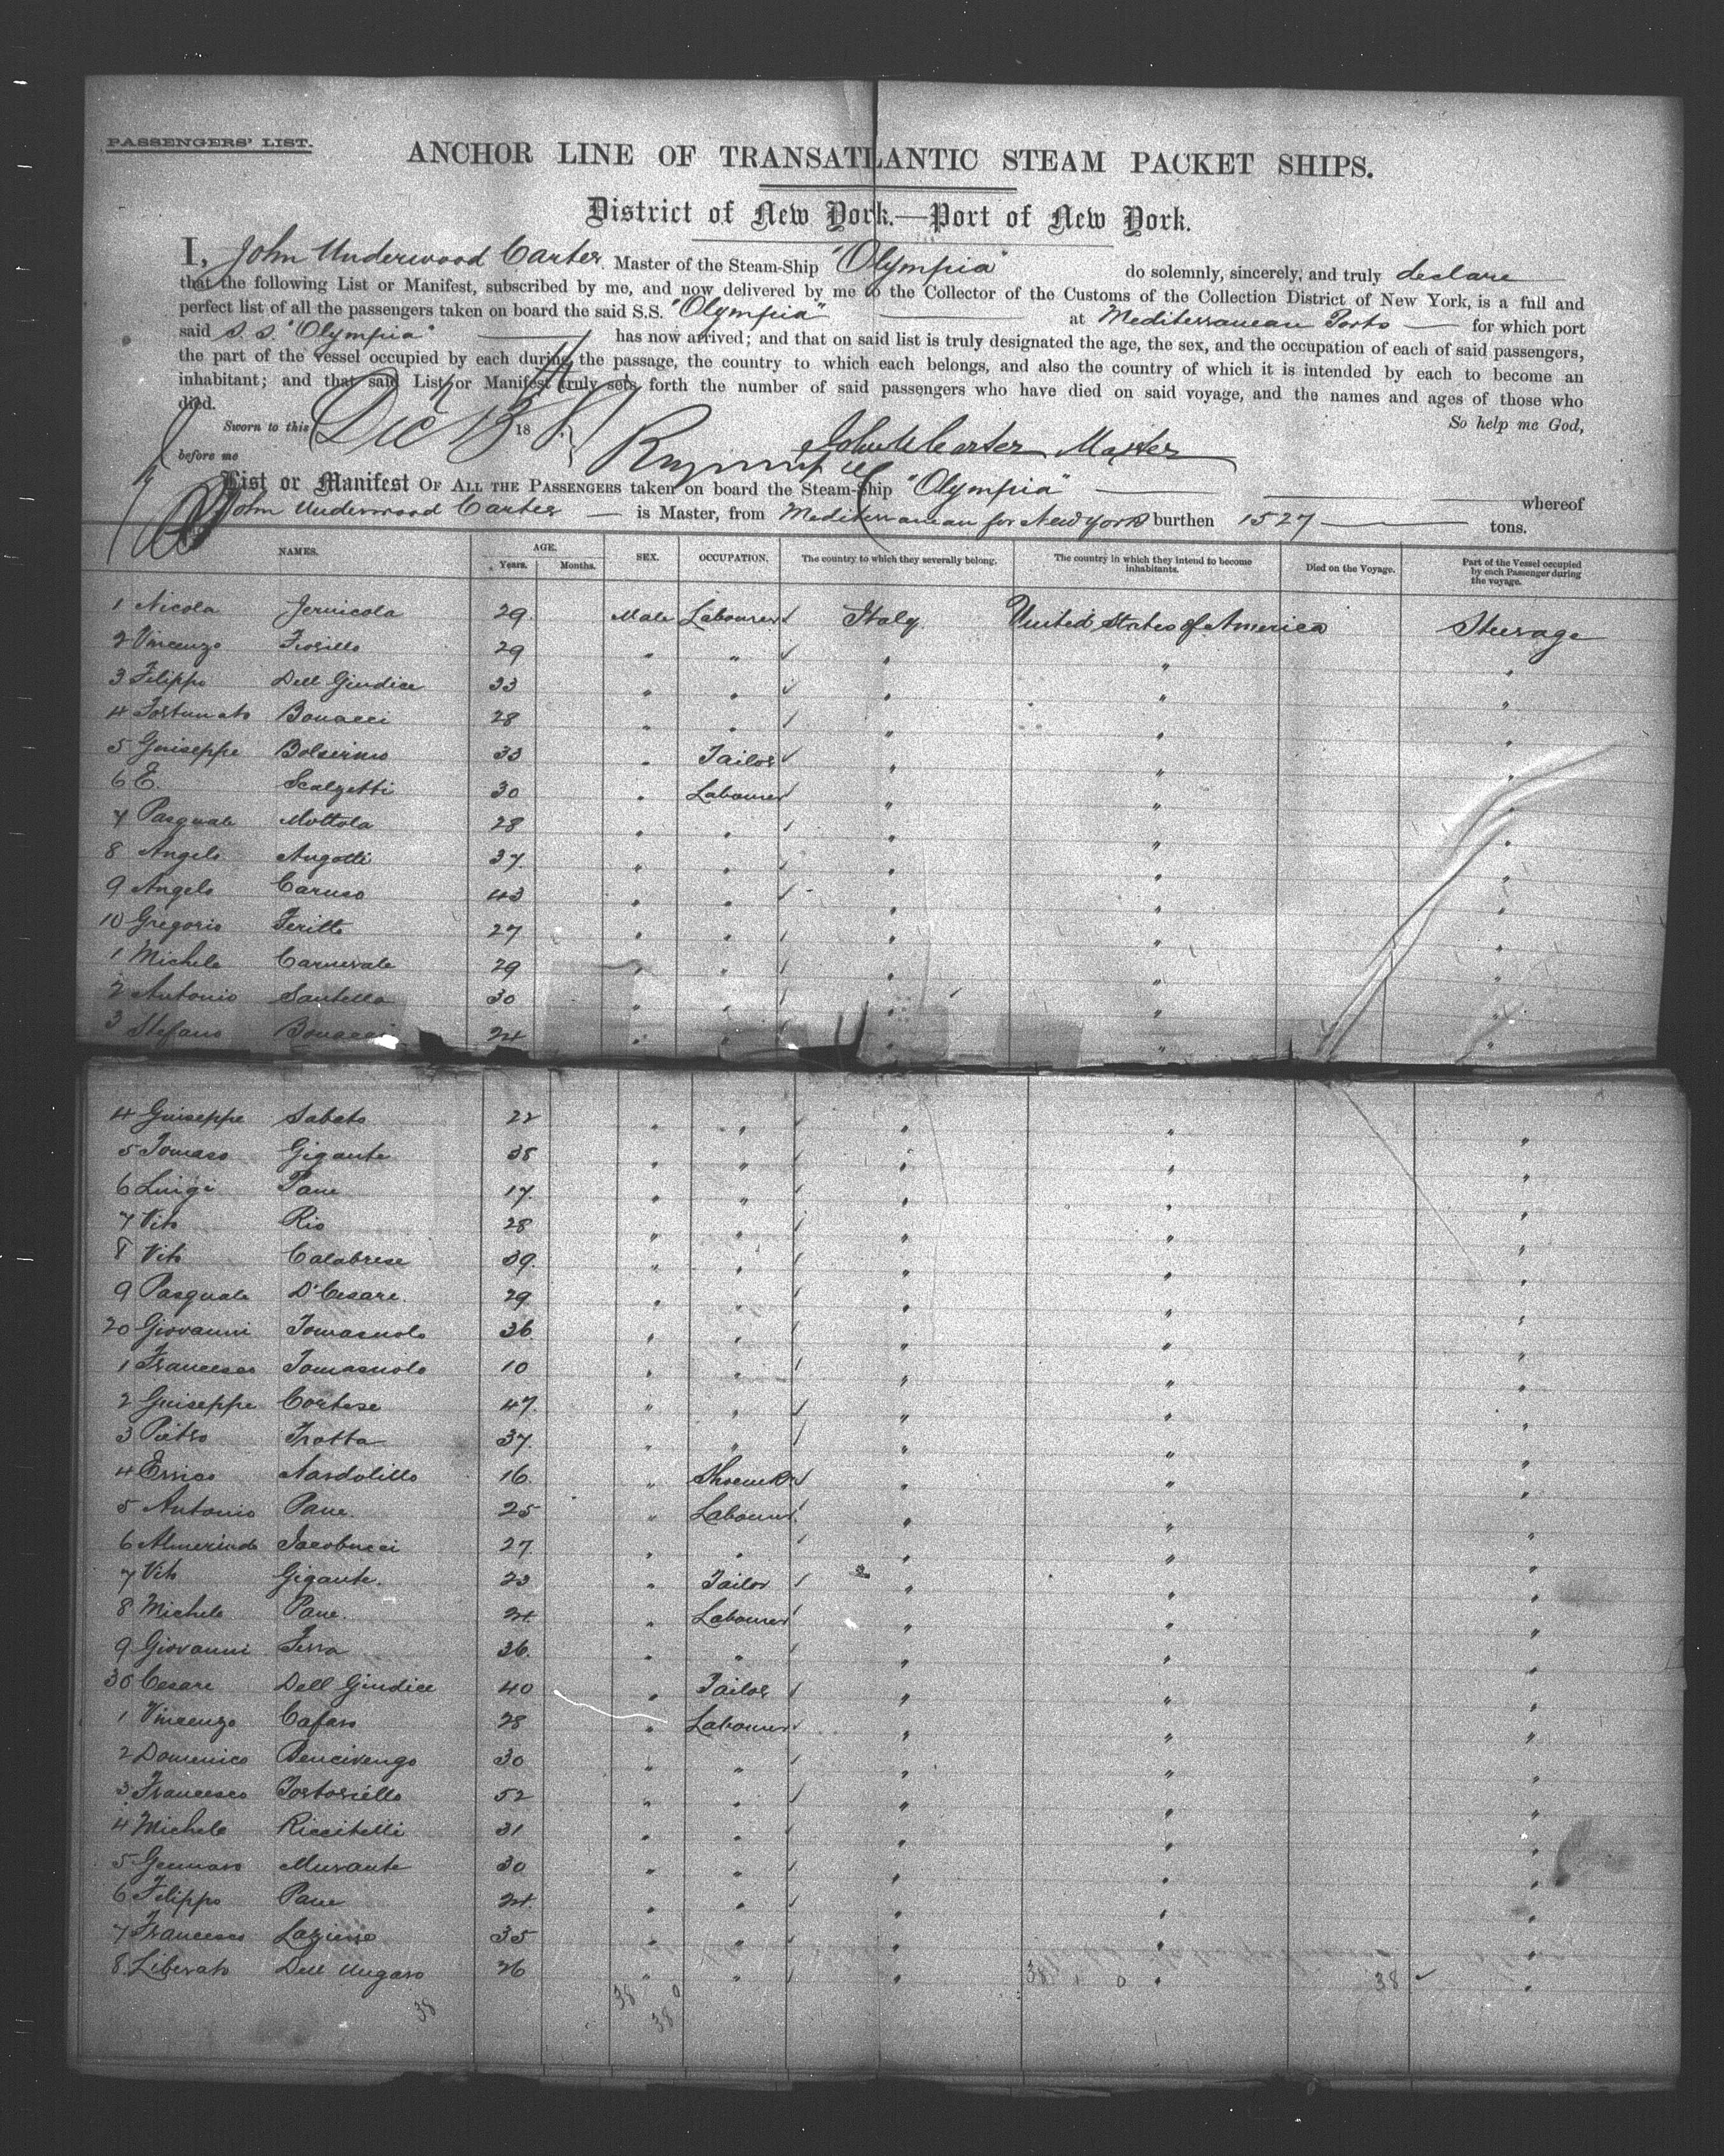 PASSENGERS' LIST.
ANCHOR LINE OF TRANSATLANTIC STEAM PACKET SHIPS.
District of New York.—Port of New York.
I, John Underwood Carter Master of the Steam-Ship "Olympia" do solemnly, sincerely, and truly declare
that the following List or Manifest, subscribed by me, and now delivered by me to the Collector of the Customs of the Collection District of New York, is a full and
perfect list of all the passengers taken on board the said S.S. "Olympia" at Mediterranean Ports for which port
said S.S. "Olympia" has now arrived; and that on said list is truly designated the age, the sex, and the occupation of each of said passengers,
the part of the vessel occupied by each during the passage, the country to which each belongs, and also the country of which it is intended by each to become an
inhabitant; and that said List or Manifest truly sets forth the number of said passengers who have died on said voyage, and the names and ages of those who
died.
So help me God,
Sworn to this Dec 13 18
John U Carter Master
before me
List or Manifest OF ALL THE PASSENGERS taken on board the Steam-Ship "Olympia" whereof
John Underwood Carter is Master, from Mediterranean for New York burthen 1527 tons.
NAMES. AGE. Years. Months. SEX. OCCUPATION. The country to which they severally belong. The country in which they intend to become inhabitants. Died on the Voyage. Part of the Vessel occupied by each Passenger during the voyage.
1 Nicola Jervicola 29 Male Labourer Italy United States of America Steerage
2 Vincenzo Fiorillo 29 " " " " "
3 Filippo Dell Giudice 33 " " " " "
4 Fortunato Bonacci 28 " " " " "
5 Guiseppe Bolserino 33 " Tailor " " "
6 E. Scalzetti 30 " Labourer " " "
7 Pasquale Mottola 28 " " " " "
8 Angelo Angotti 37 " " " " "
9 Angelo Caruso 43 " " " " "
10 Gregorio Feritto 27 " " " " "
1 Michele Carnevale 29 " " " " "
2 Antonio Santella 30 " " " " "
3 Stefano Bonacci 24 " " " " "
4 Guiseppe Sabato 22 " " " " "
5 Tomaso Gigante 38 " " " " "
6 Luigi Pane 17 " " " " "
7 Vito Rio 28 " " " " "
8 Vito Calabrese 39 " " " " "
9 Pasquale D'Cesare 29 " " " " "
20 Giovanni Tomasuolo 36 " " " " "
1 Francesco Tomasuolo 10 " " " " "
2 Guiseppe Cortese 47 " " " " "
3 Pietro Trotta 37 " " " " "
4 Errico Nardolillo 16 " Shoemkr " " "
5 Antonio Pane 25 " Labourer " " "
6 Almerindo Jacobucci 27 " " " " "
7 Vito Gigante 23 " Tailor " " "
8 Michele Pane 24 " Labourer " " "
9 Giovanni Ferra 36 " " " " "
30 Cesare Dell Giudice 40 " Tailor " " "
1 Vincenzo Cafaro 28 " Labourer " " "
2 Domenico Bencivengo 30 " " " " "
3 Francesco Tortoriello 52 " " " " "
4 Michele Riccitelli 31 " " " " "
5 Gennaro Murante 30 " " " " "
6 Filippo Pane 24 " " " " "
7 Francesco 35 " " " " "
8 Liberato Dell Ungaro 26 " " " " "
38 0 38 38
38 38 0